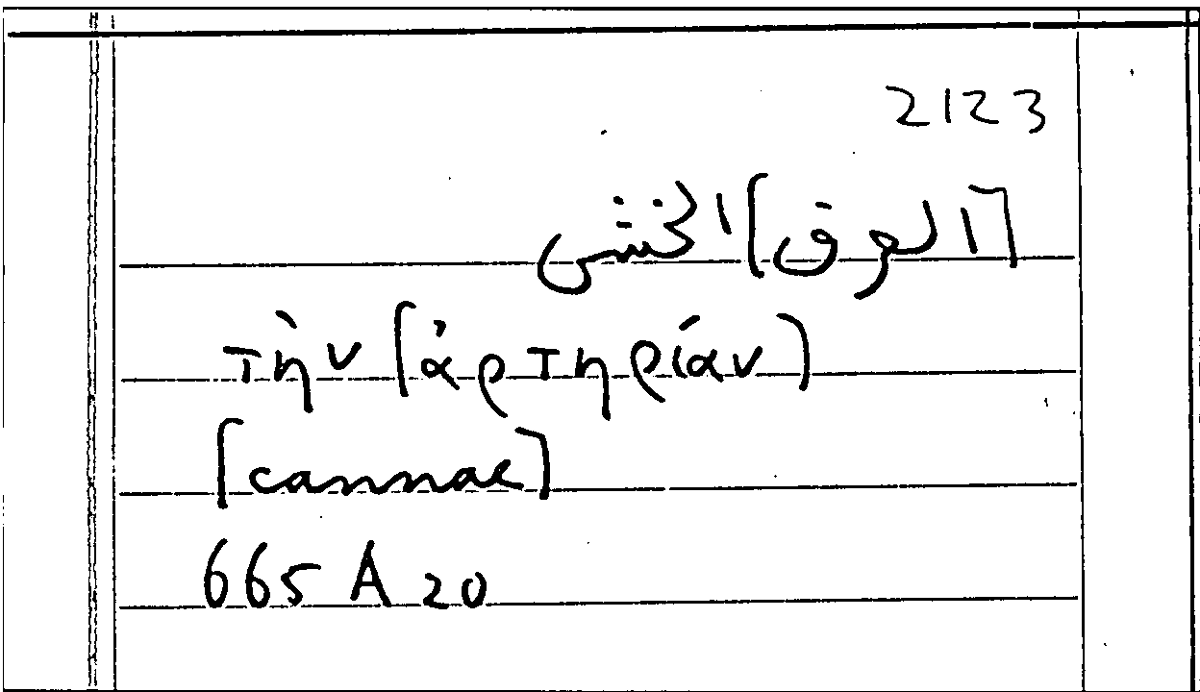 2123
[العرق] الخشن
τὴν [ἀρτηρίαν]
[cannae]
665 A 20